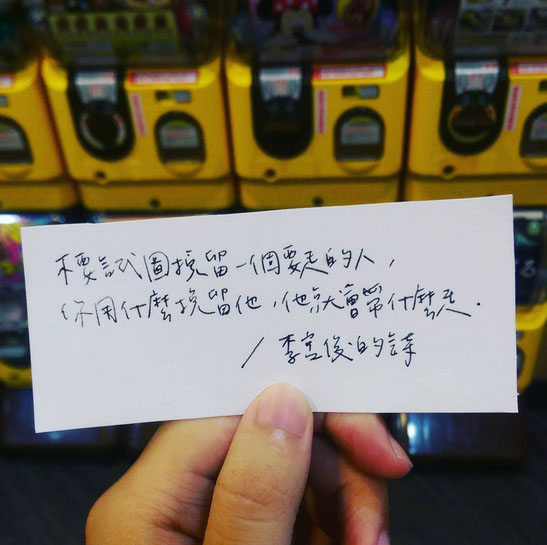 不要試圖挽留一個要走的人，
你用什麼挽留他，他就會帶什麼走．
／李宜俊的詩